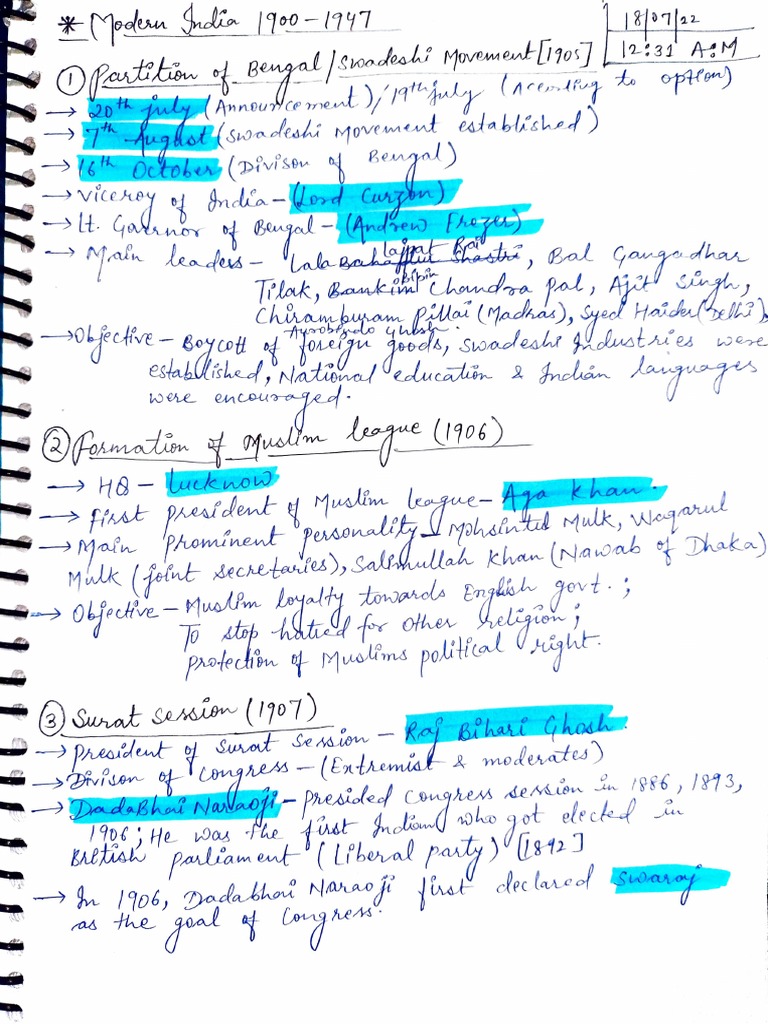 * Modern India 1900-1947
18/07/22
12:31 A:M
① Partition of Bengal/Swadeshi Movement [1905]
→ 20th july (Announcement)/19th july (Acording to option)
→ 7th August (Swadeshi Movement established)
→ 16th October (Divison of Bengal)
→ Viceroy of India - (Lord Curzon)
→ Lt. Gavrnor of Bengal - (Andrew Frezer)
→ Main leaders - Lala Lajpat Rai, Bal Gangadhar
Tilak, Bipin Chandra pal, Ajit Singh,
Chirampuram Pillai (Madras), Syed Haider (Delhi)
Ayrobindo Ghosh.
→ Objective - Boycott of foreign goods, Swadeshi Industries were
established, National education & Indian languages
were encouraged.
② Formation of Muslim league (1906)
→ HQ - Lucknow
→ First president of Muslim league - Aga Khan.
→ Main prominent personality - Mohsintul Mulk, Waqarul
Mulk (joint secretaries), Salimullah Khan (Nawab of Dhaka)
→ Objective - Muslim loyalty towards English govt. ;
To stop hatred for other religion ;
protection of Muslims political right.
③ Surat Session (1907)
→ president of Surat Session - Raj Bihari Ghosh.
→ Divison of Congress - (Extremist & moderates)
→ DadaBhai Naraoji - Presided Congress session in 1886, 1893,
1906; He was the first Indian who got elected in
British parliament (Liberal party) [1892]
→ In 1906, Dadabhai Naraoji first declared Swaraj
as the goal of Congress.